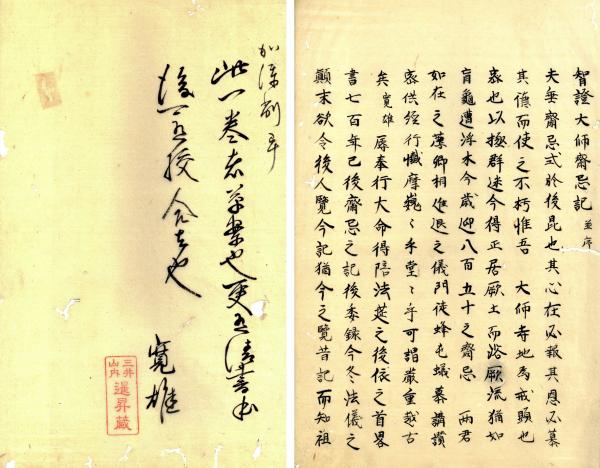 智證大師齋忌記 並序
夫垂齋忌式於後昆也其心在必報其恩必慕
其德而使之不朽惟吾 大師寺地為戒頭也
也以極群迷今得正居厥土而浴厥流猶如
盲龜遭浮木今歲迎八百五十之齋忌 兩君
如在之薦卿相進退之儀門徒蜂屯蟻慕講讚
密供経行懺摩巍〻乎堂〻乎可謂嚴重越古
矣寛雄辱奉行大命得陪法莚之後依之首畧
書七百年已後齋忌之記後委録今冬法儀之
顛末欲令後人覽今記猶今之覽昔記而知祖
此一巻者草案也更清書
寛雄
三井
山内
暹昇蔵